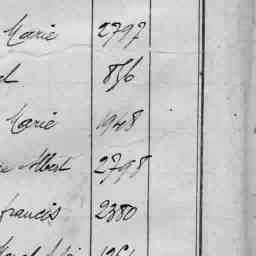 Marie 2797
d 856
Marie 1948
Albert 2798
francis 2380